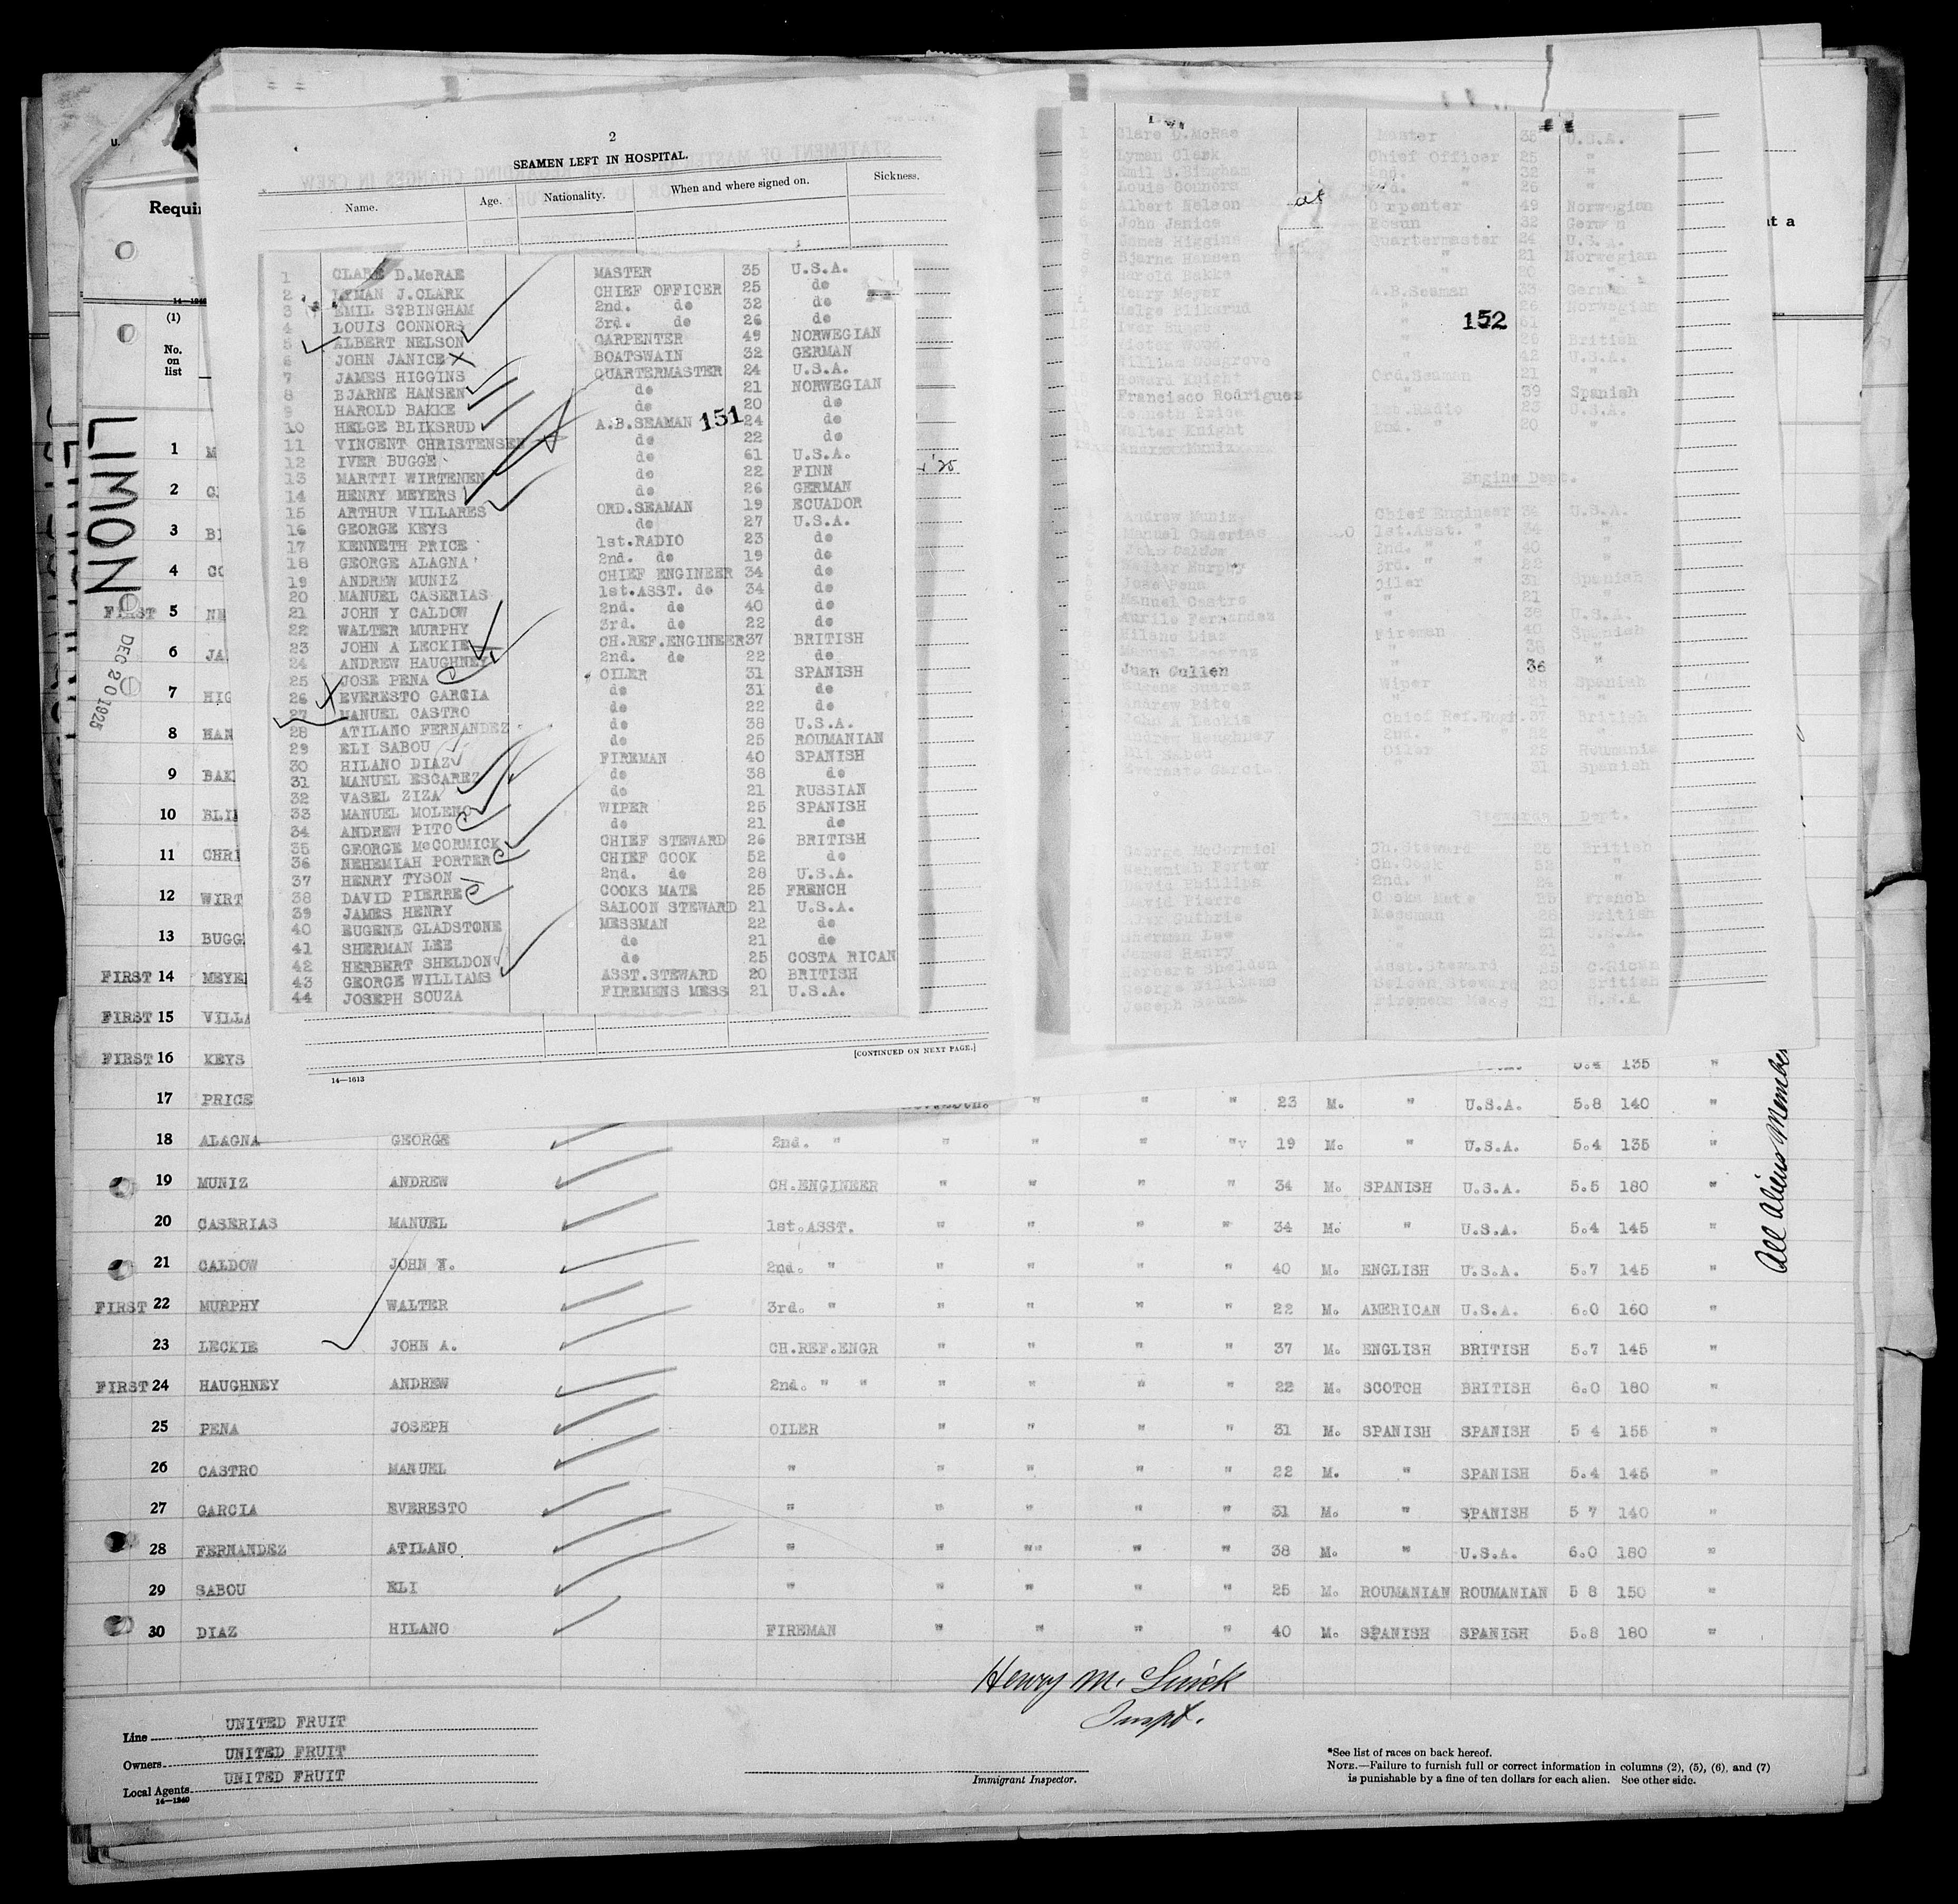 2
SEAMEN LEFT IN HOSPITAL.
Name. Age. Nationality. When and where signed on. Sickness.
1 CLARE D.McRAE MASTER 35 U.S.A.
2 LYMAN J.CLARK CHIEF OFFICER 25 do
3 EMIL S?BINGHAM 2nd. do 32 do
4 LOUIS CONNORS 3rd. do 26 do
5 ALBERT NELSON CARPENTER 49 NORWEGIAN
6 JOHN JANICE BOATSWAIN 32 GERMAN
7 JAMES HIGGINS QUARTERMASTER 24 U.S.A.
8 BJARNE HANSEN do 21 NORWEGIAN
9 HAROLD BAKKE do 20 do
10 HELGE BLIKSRUD A.B.SEAMAN 24 do
151
11 VINCENT CHRISTENSEN do 22 do
12 IVER BUGGE do 61 U.S.A.
13 MARTTI WIRTENEN do 22 FINN
14 HENRY MEYERS do 26 GERMAN
15 ARTHUR VILLARES ORD.SEAMAN 19 ECUADOR
16 GEORGE KEYS do 27 U.S.A.
17 KENNETH PRICE 1st.RADIO 23 do
18 GEORGE ALAGNA 2nd. do 19 do
19 ANDREW MUNIZ CHIEF ENGINEER 34 do
20 MANUEL CASERIAS 1st.ASST. do 34 do
21 JOHN Y CALDOW 2nd. do 40 do
22 WALTER MURPHY 3rd. do 22 do
23 JOHN A LECKIE CH.REF.ENGINEER 37 BRITISH
24 ANDREW HAUGHNEY 2nd. do 22 do
25 JOSE PENA OILER 31 SPANISH
26 EVERESTO GARCIA do 31 do
27 MANUEL CASTRO do 22 do
28 ATILANO FERNANDEZ do 38 U.S.A.
29 ELI SABOU do 25 ROUMANIAN
30 HILANO DIAZ FIREMAN 40 SPANISH
31 MANUEL ESCAREZ do 38 do
32 VASEL ZIZA do 21 RUSSIAN
33 MANUEL MOLENO WIPER 25 SPANISH
34 ANDREW PITO do 21 do
35 GEORGE McCORMICK CHIEF STEWARD 26 BRITISH
36 NEHEMIAH PORTER CHIEF COOK 52 do
37 HENRY TYSON 2nd. do 28 U.S.A.
38 DAVID PIERRE COOKS MATE 25 FRENCH
39 JAMES HENRY SALOON STEWARD 21 U.S.A.
40 EUGENE GLADSTONE MESSMAN 22 do
41 SHERMAN LEE do 21 do
42 HERBERT SHELDON do 25 COSTA RICAN
43 GEORGE WILLIAMS ASST.STEWARD 20 BRITISH
44 JOSEPH SOUZA FIREMENS MESS 21 U.S.A.
[CONTINUED ON NEXT PAGE.]
14—1613
1 Clare D.McRae Master 35 U.S.A.
Lyman Clark Chief Officer 25 "
Emil S.Bingham 2nd. " 32 "
Louis Connors 3rd. " 26 "
Albert Nelson at Carpenter 49 Norwegian
John Janice Bosun 32 German
James Higgins Quartermaster 24 U.S.A.
Bjarne Hansen " 21 Norwegian
Harold Bakke "
Henry Meyer A.B.Seaman 33 German
Helge Bliksrud " 26 Norwegian
Iver Bugge " 61
152
Victor Wood " 26 British
William Cosgrove " 42 U.S.A.
Howard Knight Ord.Seaman 21 "
Francisco Rodrigues " 39 Spanish
Kenneth Price 23 U.S.A.
Walter Knight 2nd. " 20 "
Engine Dept.
Andrew Muniz Chief Engineer 34 U.S.A.
Manuel Caserias 1st.Asst. " 34 "
John Caldow 2nd. " " 40 "
Walter Murphy 3rd. " " 22 "
Jose Pena Oiler 31 Spanish
Manuel Castro " 21 "
Fernandez " 38 U.S.A.
Hilano Diaz Fireman 40 Spanish
" 38 "
Juan Cullen " 36 "
Eugene Suarez Wiper 28 Spanish
Andrew Pito " 21 "
John A Leckie Chief Ref.Engr. 37 British
Andrew Haughney 2nd. " " 22 "
Eli Sabou Oiler 25 Roumania
Everesto Garcia " 31 Spanish
Stewards Dept.
George McCormick Ch.Steward 26 British
Nehemiah Porter Ch.Cook 52 "
David Phillips 2nd. " 24 "
David Pierre Cooks Mate 25 French
Alex Guthrie Messman 26 British
Sherman Lee " 21 U.S.A.
James Henry " 21 "
Herbert Sheldon Asst.Steward 25 C.Rican
George Williams Saloon Steward 20 British
Joseph Souza Firemens Mess 21 U.S.A.
Requir
14—1240
(1)
No. on list
LIMON
DEC 20 1925
1 M
2 C
3 BI
4 CO
FIRST 5 NE
6 JA
7 HIG
8 HAN
9 BAK
10 BLI
11 CHRI
12 WIRT
13 BUGG
FIRST 14 MEYE
FIRST 15 VILLA
FIRST 16 KEYS 5.4 135 "
17 PRICE " " " 23 M. " U.S.A. 5.8 140 "
18 ALAGNA GEORGE 2nd. " " " " " 19 M. " U.S.A. 5.4 135 "
19 MUNIZ ANDREW CH.ENGINEER " " " " 34 M. SPANISH U.S.A. 5.5 180 "
20 CASERIAS MANUEL 1st.ASST. " " " " 34 M. " U.S.A. 5.4 145 "
21 CALDOW JOHN Y. 2nd. " " " " " 40 M. ENGLISH U.S.A. 5.7 145 "
FIRST 22 MURPHY WALTER 3rd. " " " " " 22 M. AMERICAN U.S.A. 6.0 160 "
23 LECKIE JOHN A. CH.REF.ENGR " " " " 37 M. ENGLISH BRITISH 5.7 145 "
FIRST 24 HAUGHNEY ANDREW 2nd. " " " " " " 22 M. SCOTCH BRITISH 6.0 180 "
25 PENA JOSEPH OILER " " " " 31 M. SPANISH SPANISH 5 4 155 "
26 CASTRO MANUEL " " " " " 22 M. " SPANISH 5.4 145 "
27 GARCIA EVERESTO " " " " " 31 M. " SPANISH 5 7 140 "
28 FERNANDEZ ATILANO " " " " " 38 M. " U.S.A. 6.0 180 "
29 SABOU ELI " " " " " 25 M. ROUMANIAN ROUMANIAN 5 8 150 "
30 DIAZ HILANO FIREMAN " " " " 40 M. SPANISH SPANISH 5.8 180 "
All Aliens Member
Henry M.
Inspt.
Line UNITED FRUIT
Owners UNITED FRUIT
Local Agents UNITED FRUIT
14—1240
Immigrant Inspector.
*See list of races on back hereof.
NOTE.—Failure to furnish full or correct information in columns (2), (5), (6), and (7)
is punishable by a fine of ten dollars for each alien. See other side.